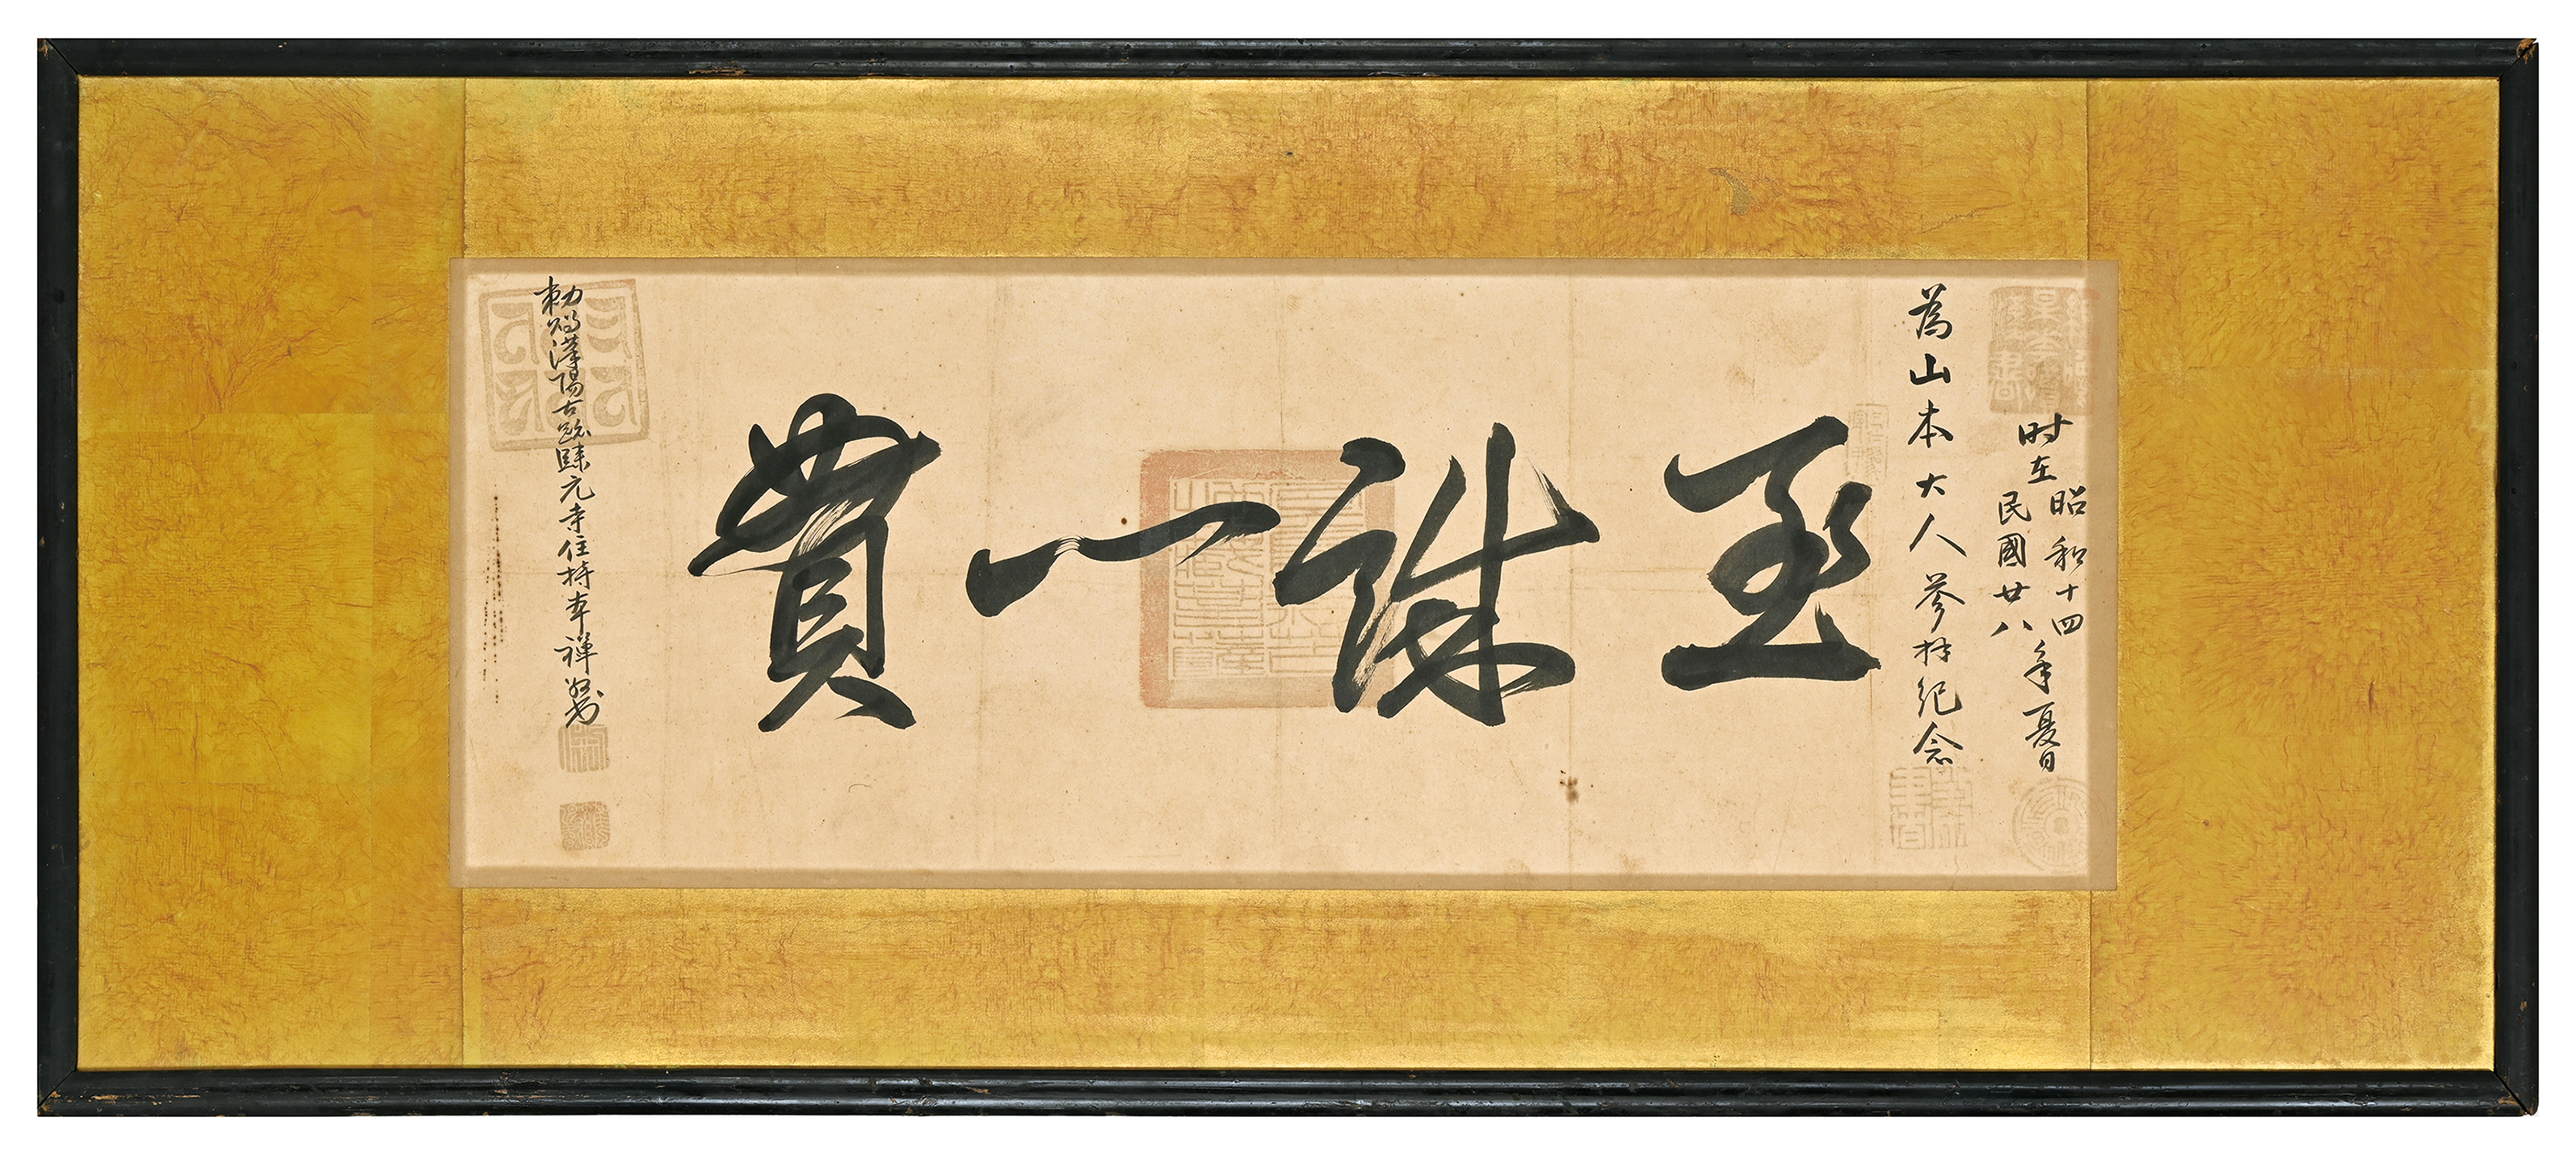 时在
昭和十四
民國廿八
年夏日
為山本大人參拜紀念
至誠一貫
勅賜漢陽古跡歸元寺住持本禅